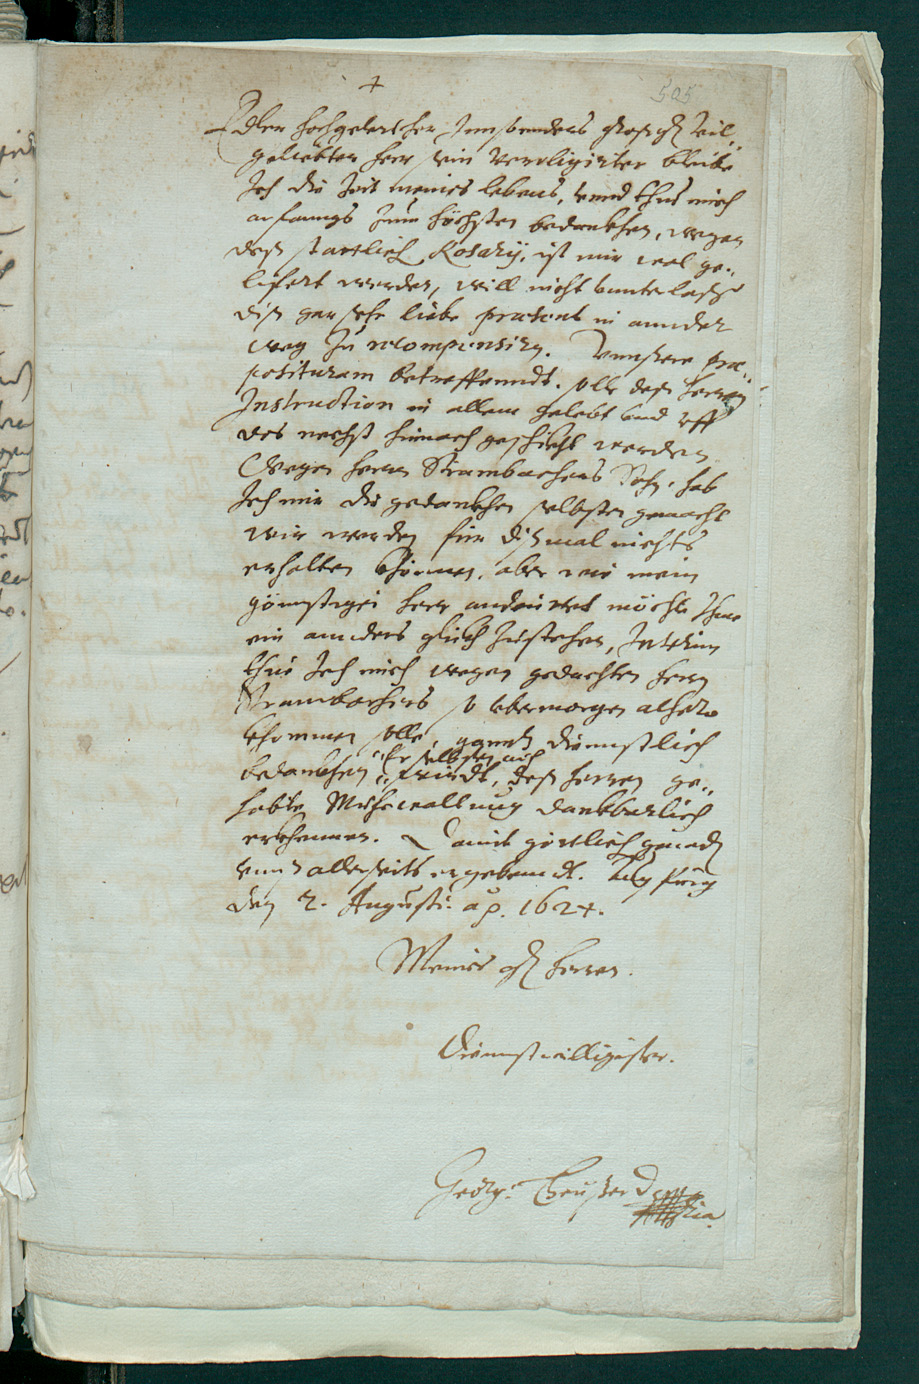 +
505
Edler hochgelerter Innsonders großg. vil„
geliebter herr sein verobligirter bleibe
Ich die Zeit meines lebens, vnnd thue mich
anfangs zum höchsten bedankhen, wegen
deß stattlich Rosarÿ, ist mir wol ge„
lifert worden, will nicht vnnterlasse
diß gar sehr liebe præsent in annder
weg zu recompensirn. Vnnsere præ„
posituram betreffenndt, solle deß herren
Instruction in allem gelebt vnd vff
des nechst hinnach geschickt werden
Wegen herrn Strambachers Sohn, hab
Ich mir die gedankhen selbsten gemacht
wir werden für dißmal nichts
erhalten khönnen, aber wie mein
günnstiger herr andeütet möchte Ihme
ein annders glikh zustehen, Interim
thue Ich mich wegen gedachten herrn
Strambachers so vbermorgen alhero
khommen solle, ganntz diennstlich
bedankhen, Er selbsten auch
wirdt, deß herren ge„
habte Mühewalltung dankbarlich
erkhennen. Damit göttlich gnaden
vnns allerseits ergebendt.
den 2. Augusti ao. 1624.
Meines g. herren.
Diennstwilligister.
Georg: